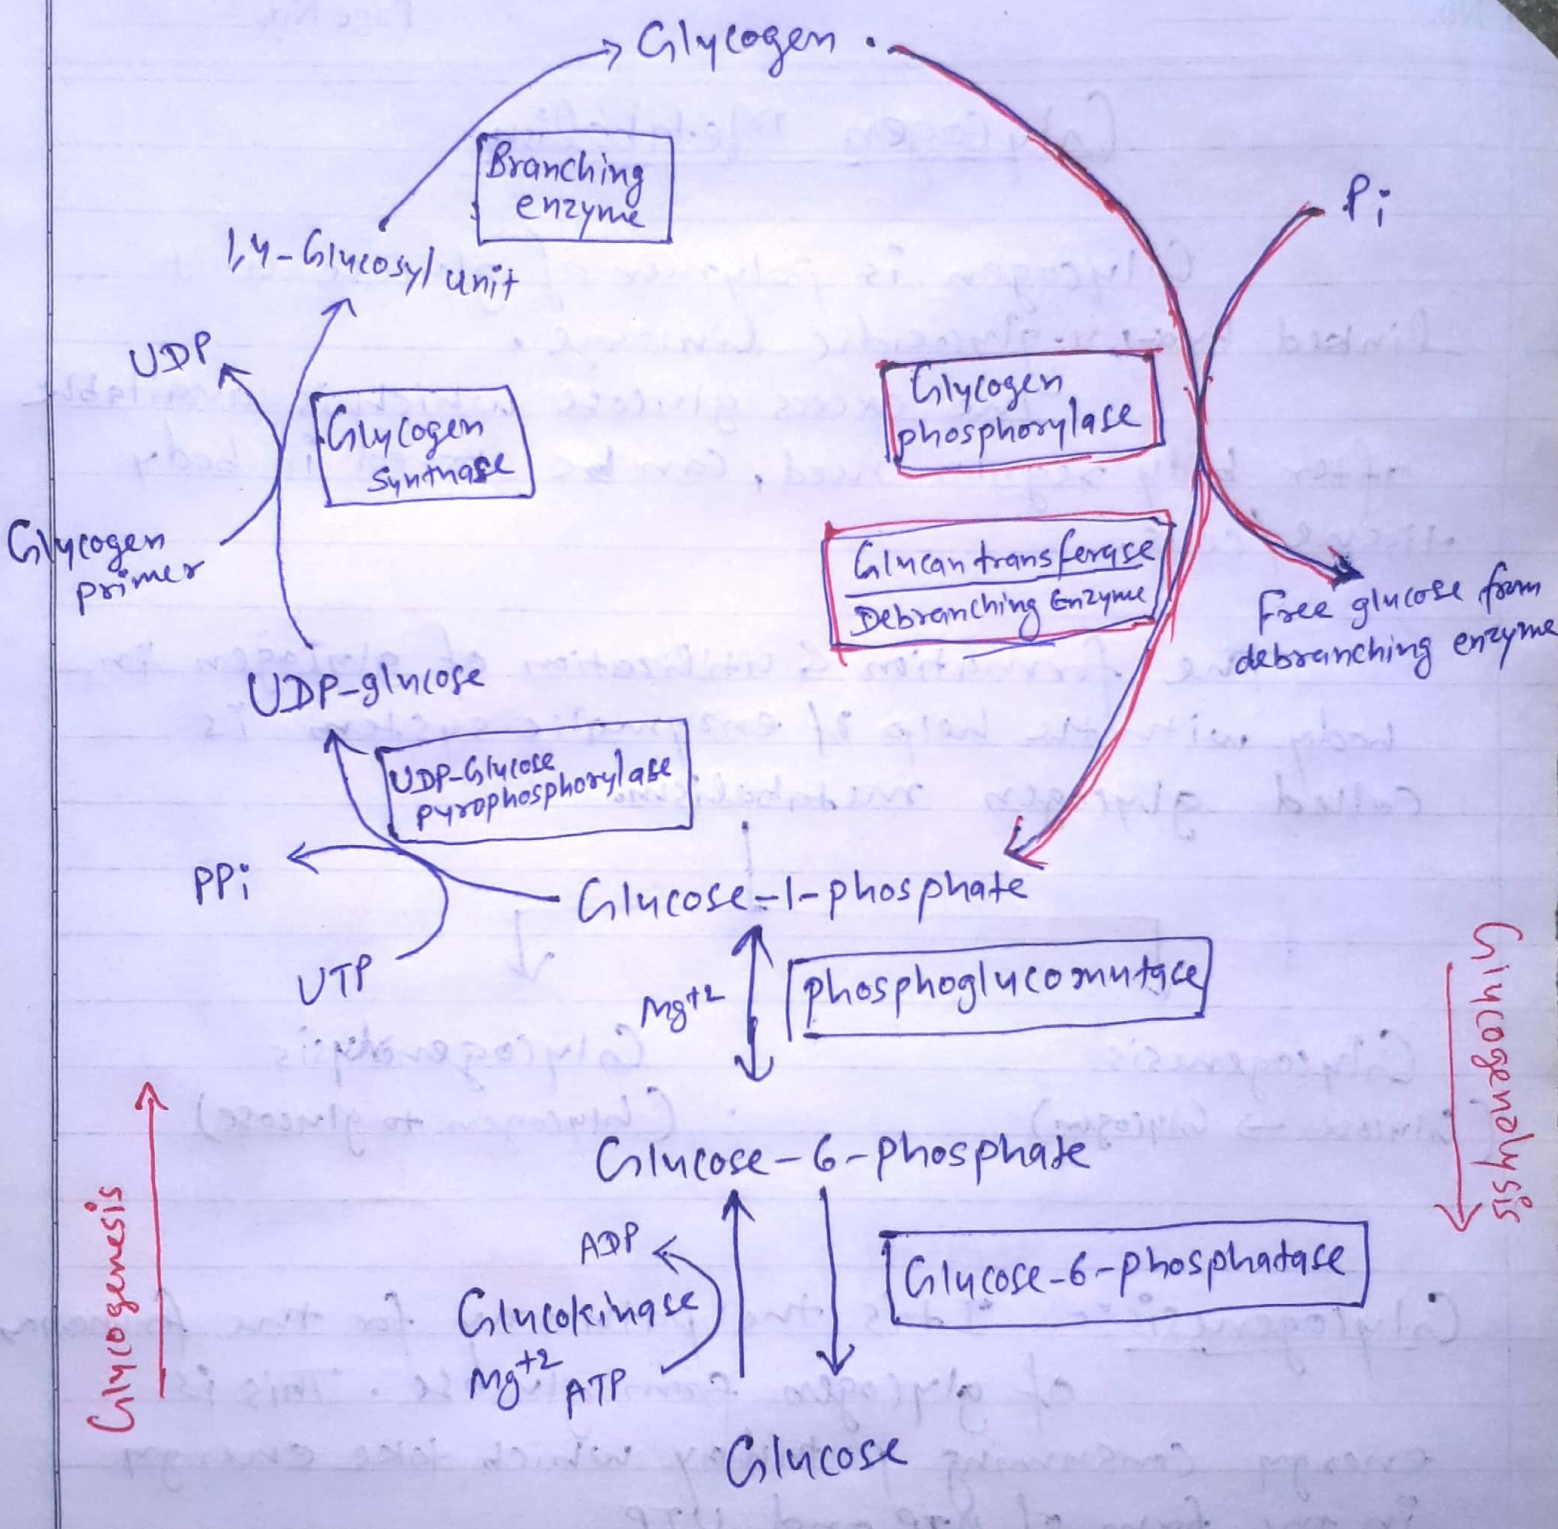 Glycogen
Branching
enzyme
Pi
1,4-Glucosyl unit
UDP
Glycogen
Synthase
Glycogen
phosphorylase
Glycogen
primer
Glucantransferase
Debranching Enzyme
Free glucose from
debranching enzyme
UDP-glucose
UDP-Glucose
pyrophosphorylase
PPi
Glucose-1-phosphate
UTP
Mg+2
phosphoglucomutase
Glycogenolysis
Glucose-6-phosphate
Glycogenesis
ADP
Glucose-6-phosphatase
Glucokinase
Mg+2
ATP
Glucose